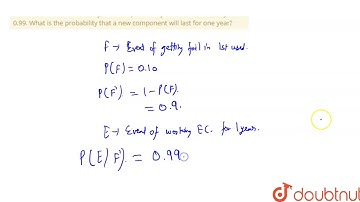 0.99. What is the probability that a new component will last for one year?
F → Event of getting fail in 1st used.
P(F) = 0.10
P(F') = 1 - P(F).
= 0.9.
E → Event of working EC. for 1 years.
P(E|F') = 0.99
doubtnut